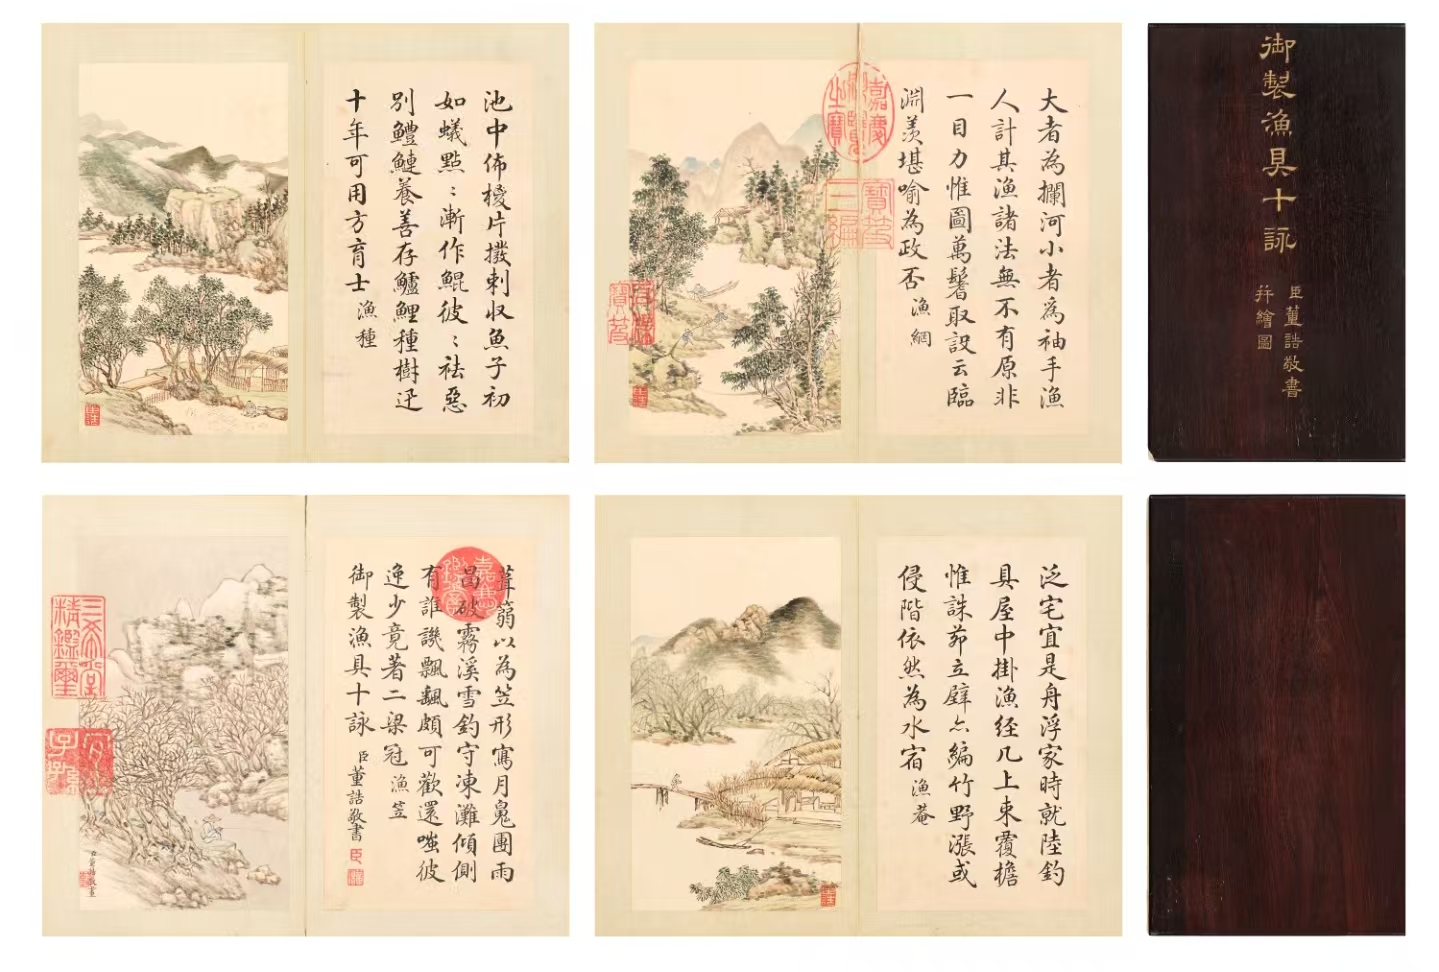 御製漁具十詠
臣董誥敬書
并繪圖
大者為攔河小者為袖手漁
人計其漁諸法無不有原非
一目力惟圖萬鬐取設云臨
淵羨堪喻為政否 漁網
嘉慶御覽之寶
寶笈三編
石渠寶笈
池中佈椶片刺收魚子初
如蟻點〻漸作鯤彼〻祛惡
別鱧鰱養善存鱸鯉種樹迟
十年可用方育士 漁種
泛宅宜是舟浮家時就陸釣
具屋中掛漁經几上束覆檐
惟誅茆立壁亦編竹野漲或
侵階依然為水宿 漁菴
葺篛以為笠形寫月團雨
昌破霧溪雪釣守凍灘傾側
有誰譏飄颻頗可歡還嗤彼
逸少竟著二梁冠 漁笠
御製漁具十詠 臣董誥敬書
嘉慶鑑賞
三希堂精鑑璽
宜子孫
臣董誥敬畫